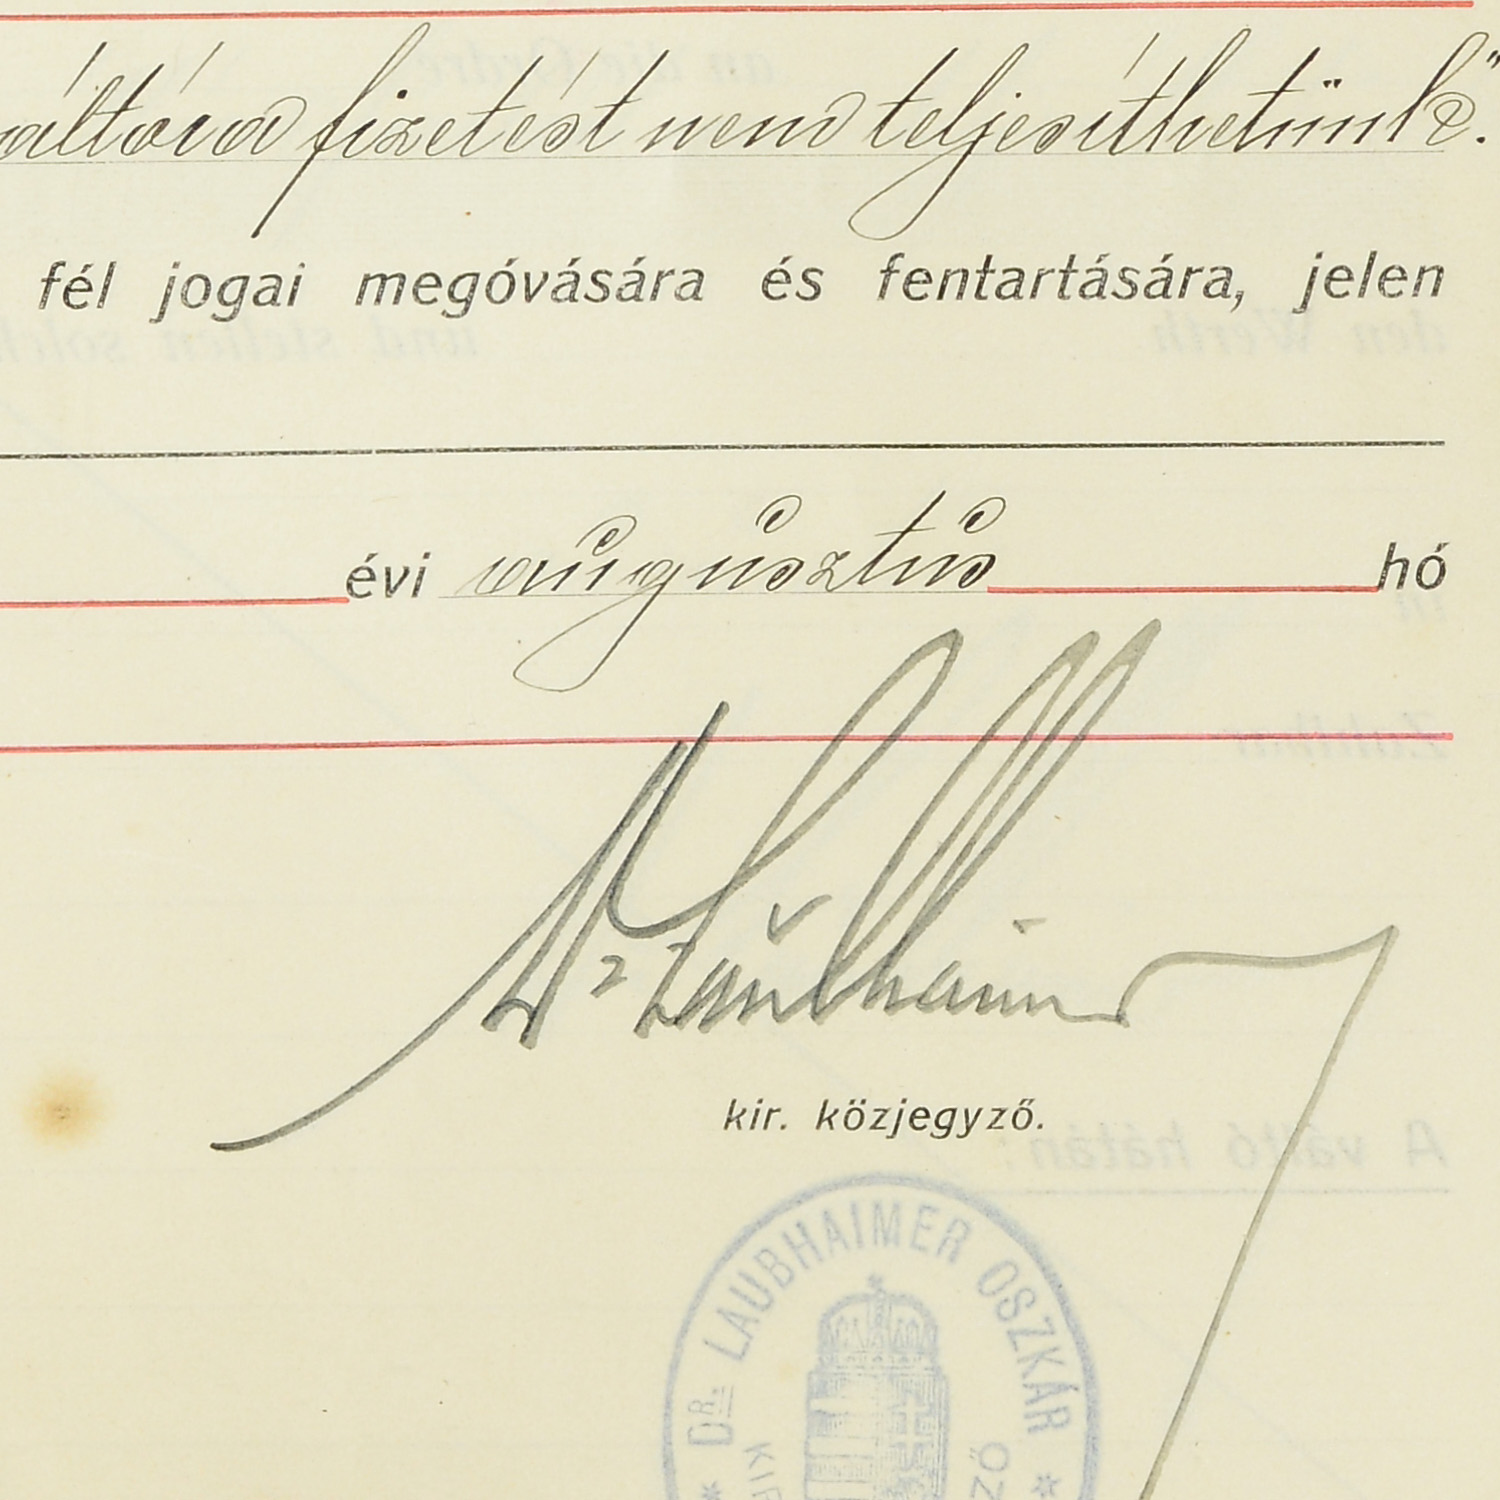 váltóra fizetést nem teljesíthetünk."
fél jogai megóvására és fentartására, jelen
évi augusztus hó
Dr Laubhaimer
kir. közjegyző.
DR. LAUBHAIMER OSZKÁR
KIR